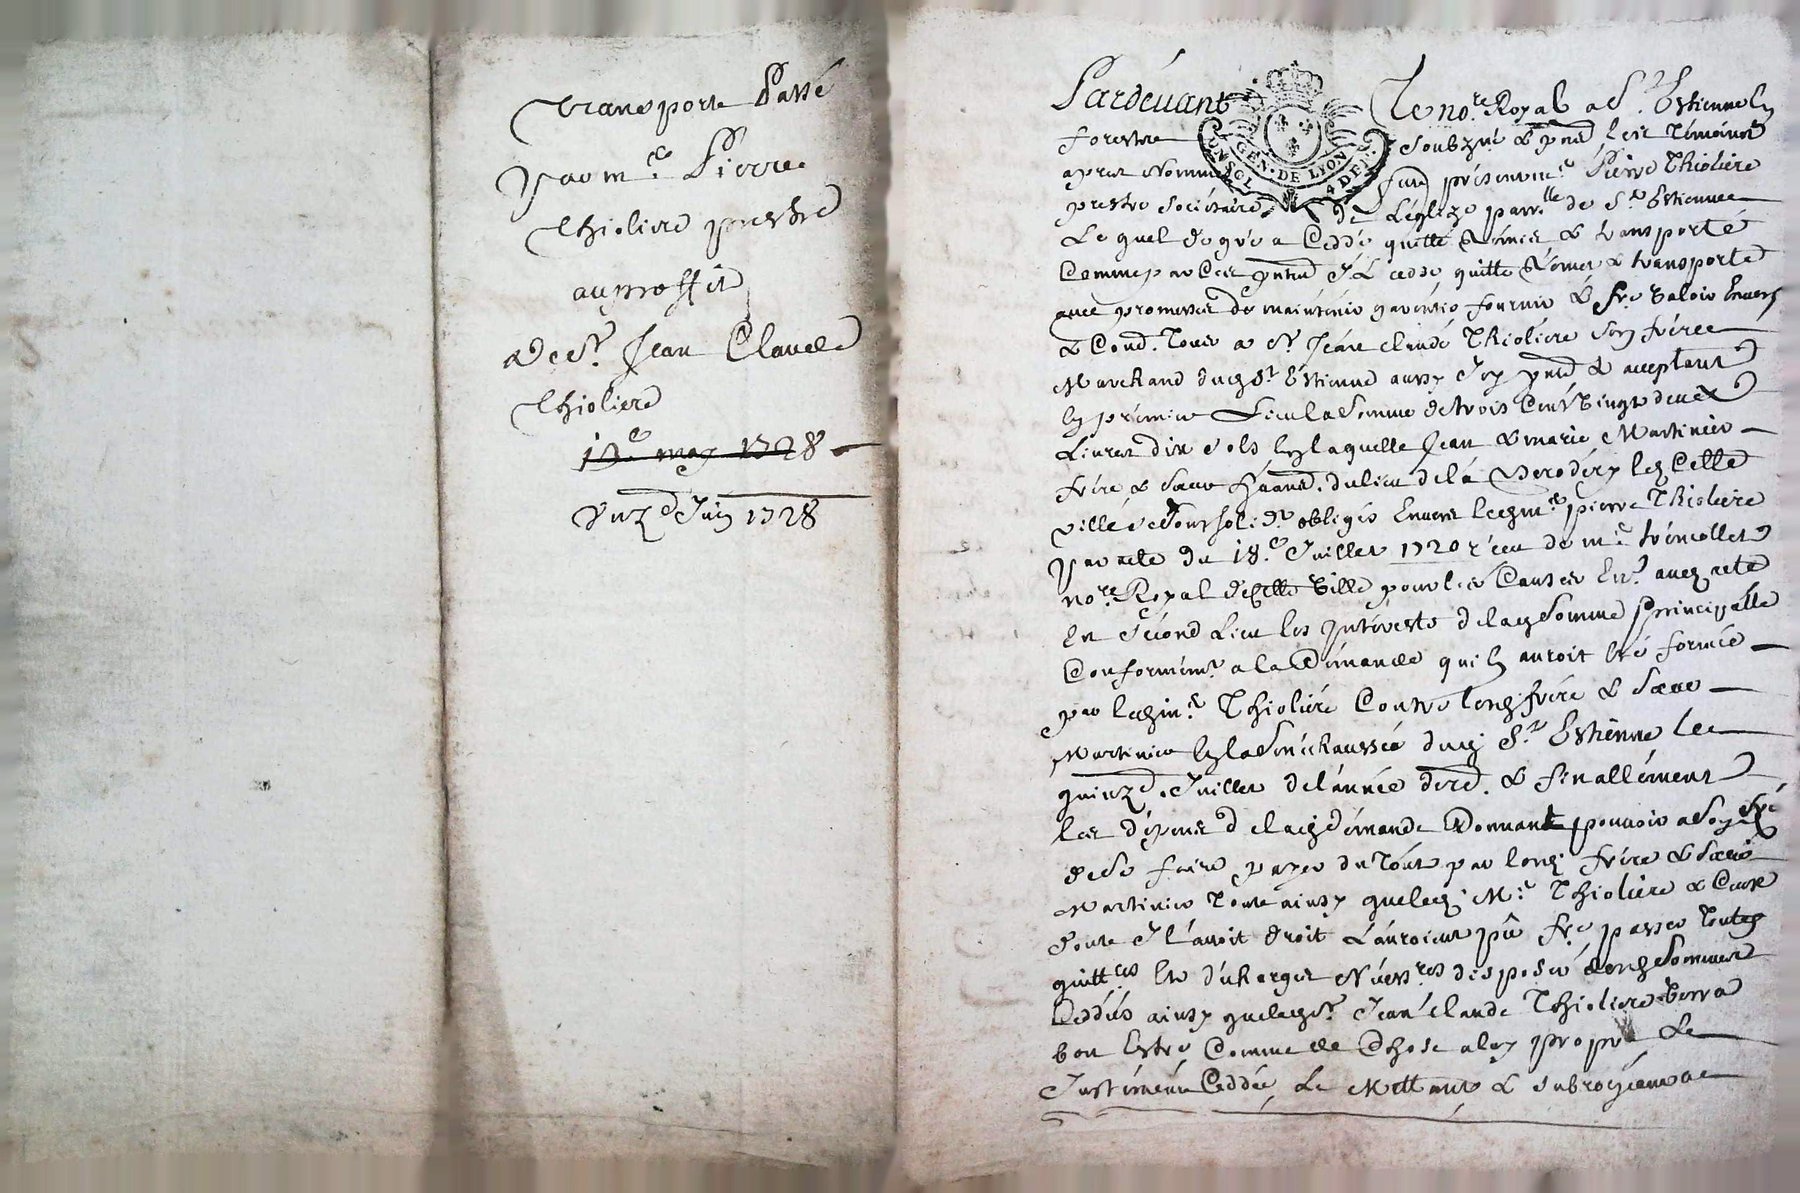 transporte Passé
par m.e Pierre
thioliere prestre
au proffit
de s.r Jean Claude
thioliere
15.e may 1728
Onz.e Juin 1728
Pardevant Le no.re Royal a S.t Estienne En
forestz soubzné & pnd les témoins
apres Nommés fut présent m.e Pierre Thioliére
prestre sociétaire de Léglize parr.lle de S.t Estienne
Lequel de gré a Ceddé quitté Rémis & transporté
Comme par Ces pntes Il cedde quitte Rémet & transporte
avec promesse de maintenir garentir fournir & f.re valoir Envers
& Cont. Tous a s.r Jéan claude Thioliére son frére
Marchand dud S.t Estienne aussy Icy pnt & acceptant
En prémier Lieu la somme de trois Cent vingt deux
Livres dix sols En laquelle Jean & marie Martinier
frére & sœur du lieu dé la lez Celle
ville se sont solid.t obligés Envers led m.e pierre Thioliere
par acte du 18.e Juillet 1720 réceu de m.e
no.re Royal de Celle ville pour les Causes En aud acte
En sécond Lieu les Intérests de lad somme principalle
Conformém.t a la Démande qui En auroit été formée
par led m.e Thioliére Contre lesd frére & sœur
Martinier En la sénéchaussée dud S.t Estienne le
quinze Juillet de l'année & finallement
les dépens de lad démande Donnant pouvoir a son fre
de se faire payer du tout par lesd frére & sœur
Martinier Tout ainsy que led M.e Thioliére & Ceux
dont Il avoit droit L'auroient pû f.re passer Toutes
quitt.ces Et décharges Nécess.res disposer desd sommes
Ceddées ainsy que led s.r Jéan claude Thioliere verra
bon Estre Comme de Chose a luy propre &
Justément Ceddée Le Mettant & subrogeant a
GEN. DE LYON